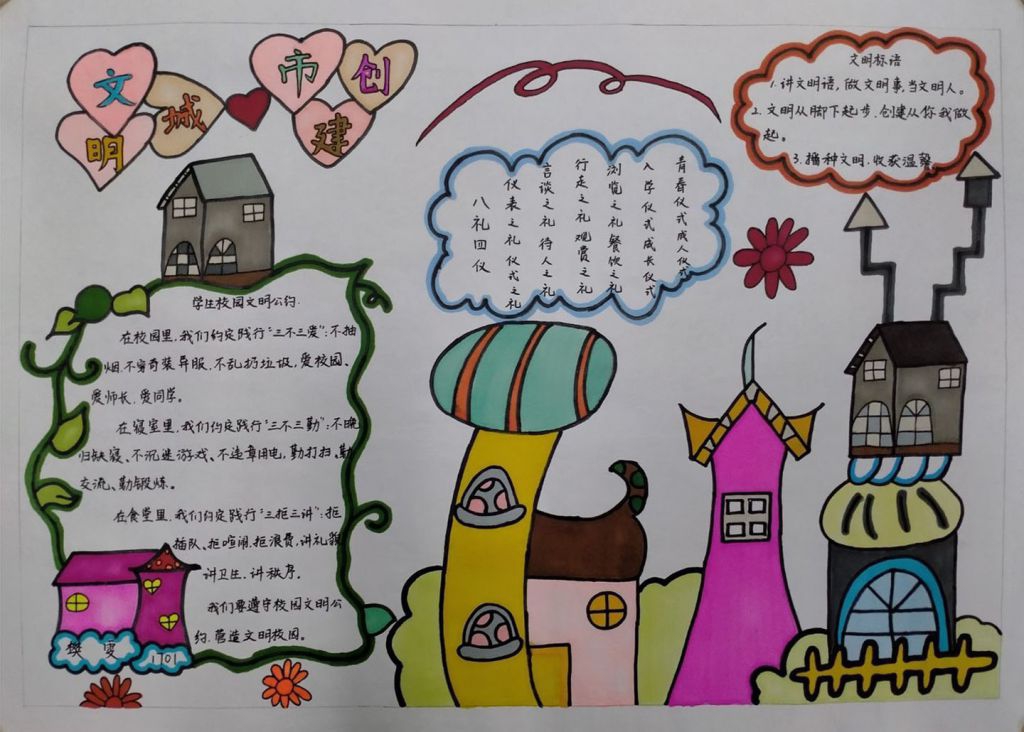 文明城市创建
学生校园文明公约.
在校园里,我们约定践行"三不三爱":不抽
烟.不穿奇装异服.不乱扔垃圾,爱校园、
爱师长,爱同学。
在寝室里,我们约定践行"三不三勤":不晚
归缺寝、不沉迷游戏、不违章用电,勤打扫、勤
交流、勤锻炼。
在食堂里,我们约定践行"三拒三讲":拒
插队、拒喧闹,拒浪费,讲礼貌
讲卫生.讲秩序.
我们要遵守校园文明公
约.营造文明校园。
樊雯
1701
青春仪式成人仪式
入学仪式成长仪式
浏览之礼餐饮之礼
行走之礼观赏之礼
言谈之礼待人之礼
仪表之礼仪式之礼
八礼四仪
文明标语
1.讲文明语,做文明事,当文明人。
2.文明从脚下起步.创建从你我做
起。
3.播种文明.收获温馨.